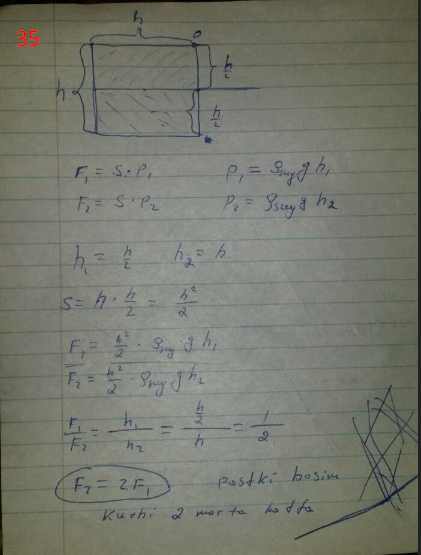 35
h
o
h
h/2
h/2
F₁ = S·P₁ P₁ = ρ_suy g h₁
F₂ = S·P₂ P₂ = ρ_suy g h₂
h₁ = h/2 h₂ = h.
S = h · h/2 = h²/2
F₁ = h²/2 · ρ_suy · g h₁
F₂ = h²/2 · ρ_suy g h₂
F₁/F₂ = h₁/h₂ = (h/2)/h = 1/2
F₂ = 2F₁ Pastki bosim
kuchi 2 marta katta